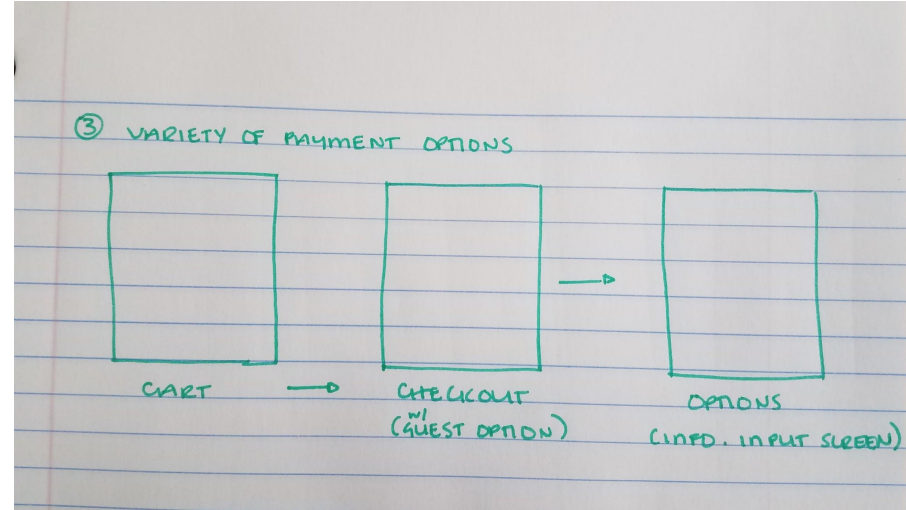 ③ VARIETY OF PAYMENT OPTIONS
CART
CHECKOUT
(w/ GUEST OPTION)
OPTIONS
(INFO. INPUT SCREEN)